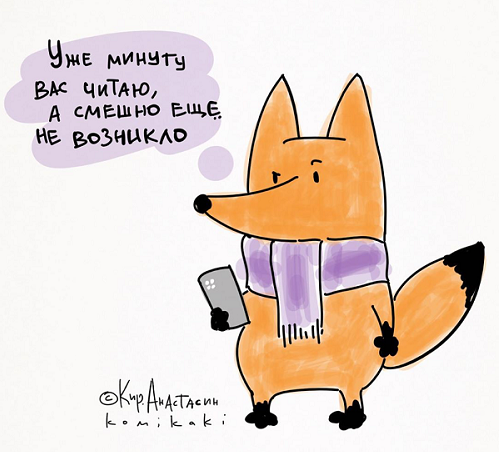 Уже минуту
вас читаю,
а смешно ещё
не возникло
©Кир.Анастасин
komikaki